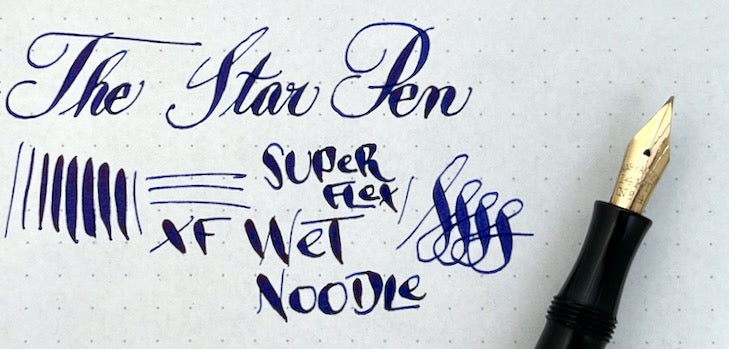 The Star Pen
SUPeR
FLeX
XF WeT
NOODLe